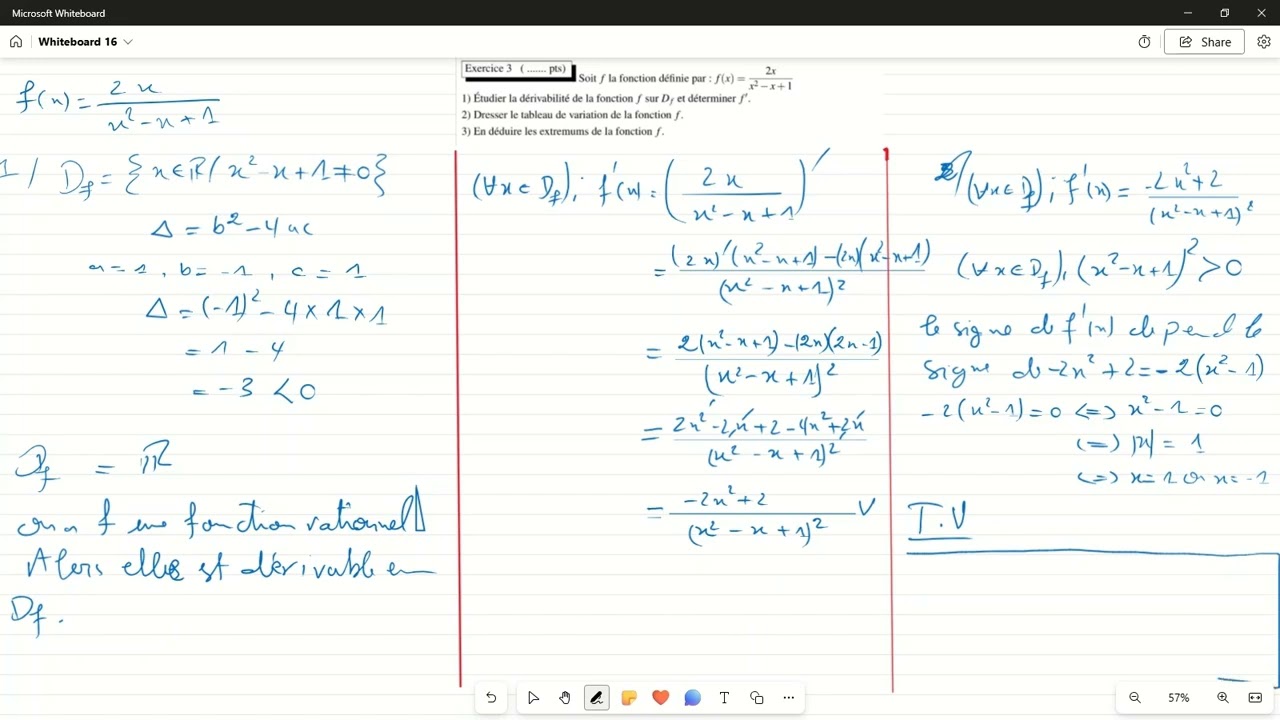 Microsoft Whiteboard
Whiteboard 16
Share
Exercice 3 ( ....... pts)
Soit f la fonction définie par : f(x) = 2x / (x² − x + 1)
1) Étudier la dérivabilité de la fonction f sur D_f et déterminer f'.
2) Dresser le tableau de variation de la fonction f.
3) En déduire les extremums de la fonction f.
f(x) = 2x / (x² − x + 1)
1/ D_f = {x ∈ ℝ / x² − x + 1 ≠ 0}
Δ = b² − 4ac
a = 1 , b = −1 , c = 1
Δ = (−1)² − 4 × 1 × 1
= 1 − 4
= −3 < 0
D_f = ℝ
on a f une fonction rationnel
Alors elle est dérivable en
D_f .
(∀x ∈ D_f) ; f'(x) = (2x / (x² − x + 1))'
= ((2x)'(x² − x + 1) − (2x)(x² − x + 1)') / (x² − x + 1)²
= (2(x² − x + 1) − (2x)(2x − 1)) / (x² − x + 1)²
= (2x² − 2x + 2 − 4x² + 2x) / (x² − x + 1)²
= (−2x² + 2) / (x² − x + 1)² V
2/ (∀x ∈ D_f) ; f'(x) = (−2x² + 2) / (x² − x + 1)²
(∀x ∈ D_f), (x² − x + 1)² > 0
le signe de f'(x) depend le
signe de −2x² + 2 = −2(x² − 1)
−2(x² − 1) = 0 <=> x² − 1 = 0
<=> |x| = 1
<=> x = 1 ou x = −1
T.V
57%